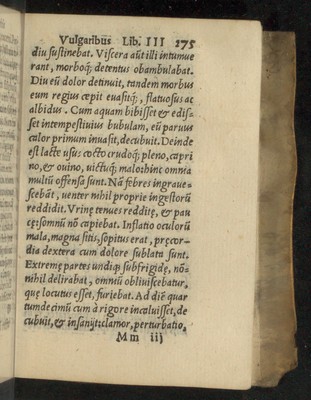 Vulgaribus Lib. III 275
diu sustinebat. Viscera aūt illi intumue
rant, morboq; detentus obambulabat.
Diu eū dolor detinuit, tandem morbus
eum regius cœpit euasitq;, flatuosus ac
albidus. Cum aquam bibisset & edis=
set intempestiuius bubulam, eū paruus
calor primum inuasit, decubuit. Deinde
est lacte usus cocto crudoq; pleno, capri
no, & ouino, uictuq; malo: hinc omnia
multū offensa sunt. Nā febres ingraue=
scebāt, uenter nihil proprie ingestorū
reddidit. Vrinę tenues redditę, & pau
cę: somnū nō capiebat. Inflatio oculorū
mala, magna sitis, sopitus erat, pręcor=
dia dextera cum dolore sublata sunt.
Extremę partes undiq; subfrigidę, nō=
nihil delirabat, omniū obliuiscebatur,
quę locutus esset, furiebat. Ad diē quar
tumdecimū cum à rigore incaluisset, de
cubuit, & insanijt: clamor, perturbatio,
Mm iij